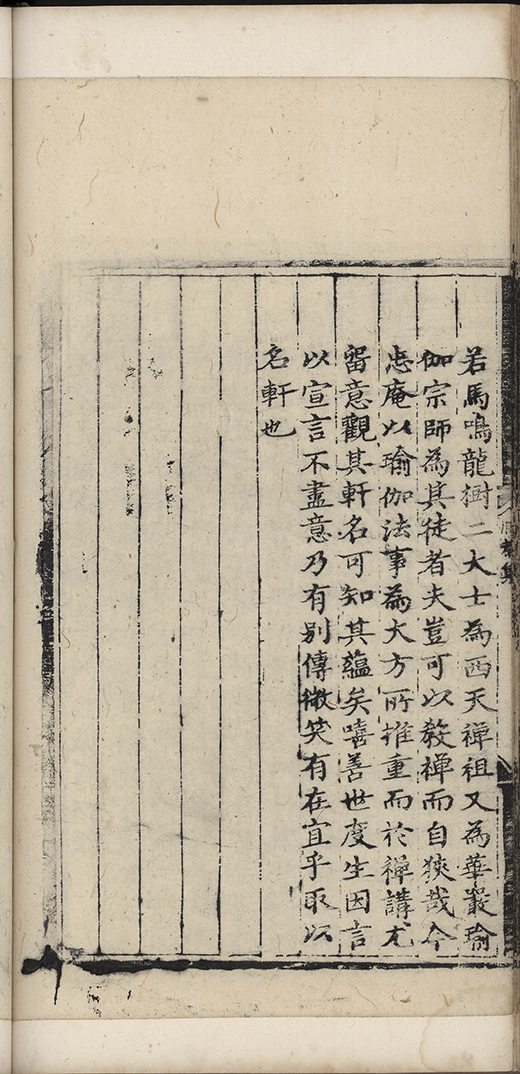 若馬鳴龍樹二大士為西天禪祖又為華嚴瑜
伽宗師為其徒者夫豈可以教禪而自狹哉今
忠庵以瑜伽法事為大方所推重而於禪講尤
畱意觀其軒名可知其蘊矣嘻善世度生因言
以宣言不盡意乃有別傳微笑有在宜乎取以
名軒也